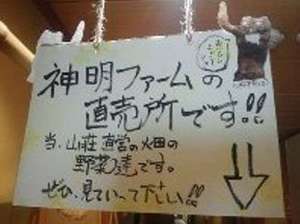 神明ファームの
直売所です!!
当、山荘直営の畑の
野菜達です。
ぜひ、見ていって下さい!!